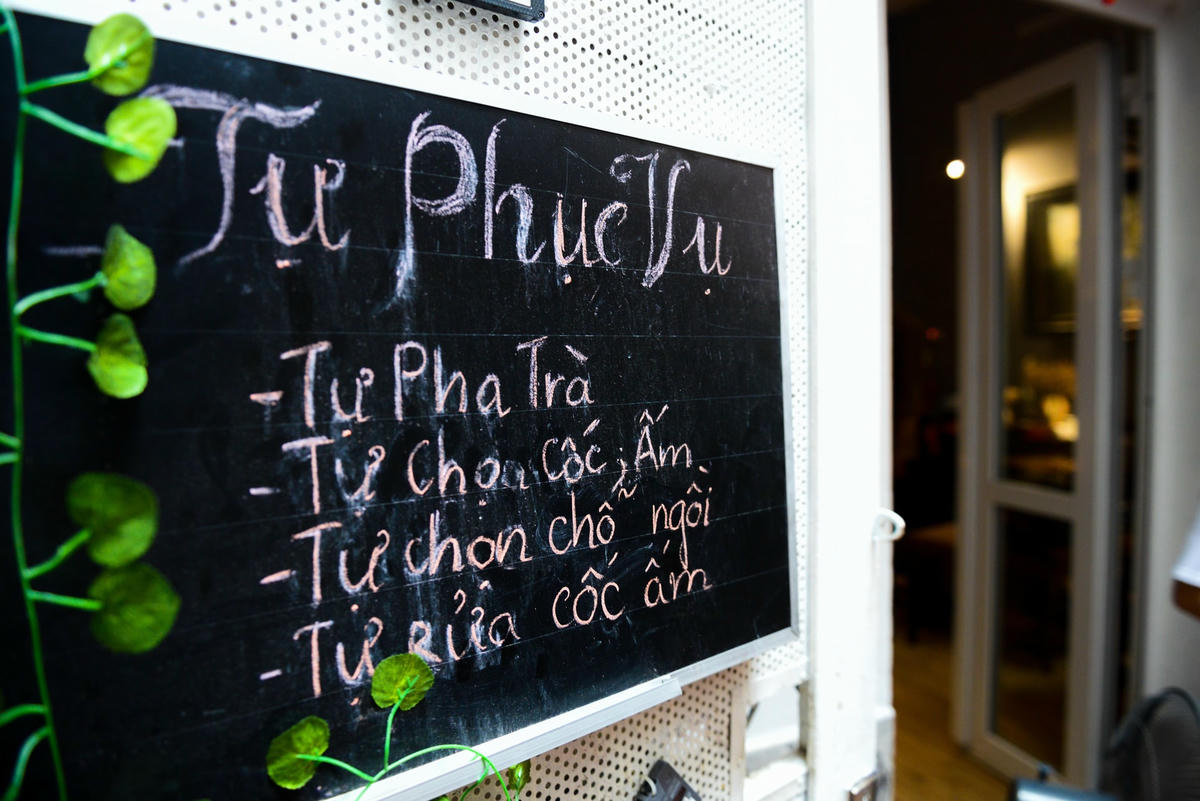 Tự Phục Vụ
- Tự Pha Trà
- Tự chọn cốc, Ấm
- Tự chọn chỗ ngồi
- Tự rửa cốc ấm